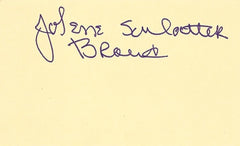 JoLene Schlatter
Brand